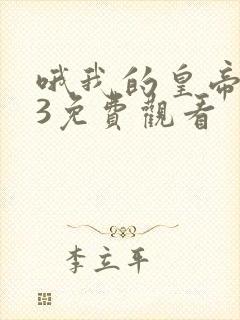 哦我的皇帝
3免費觀看
李立平